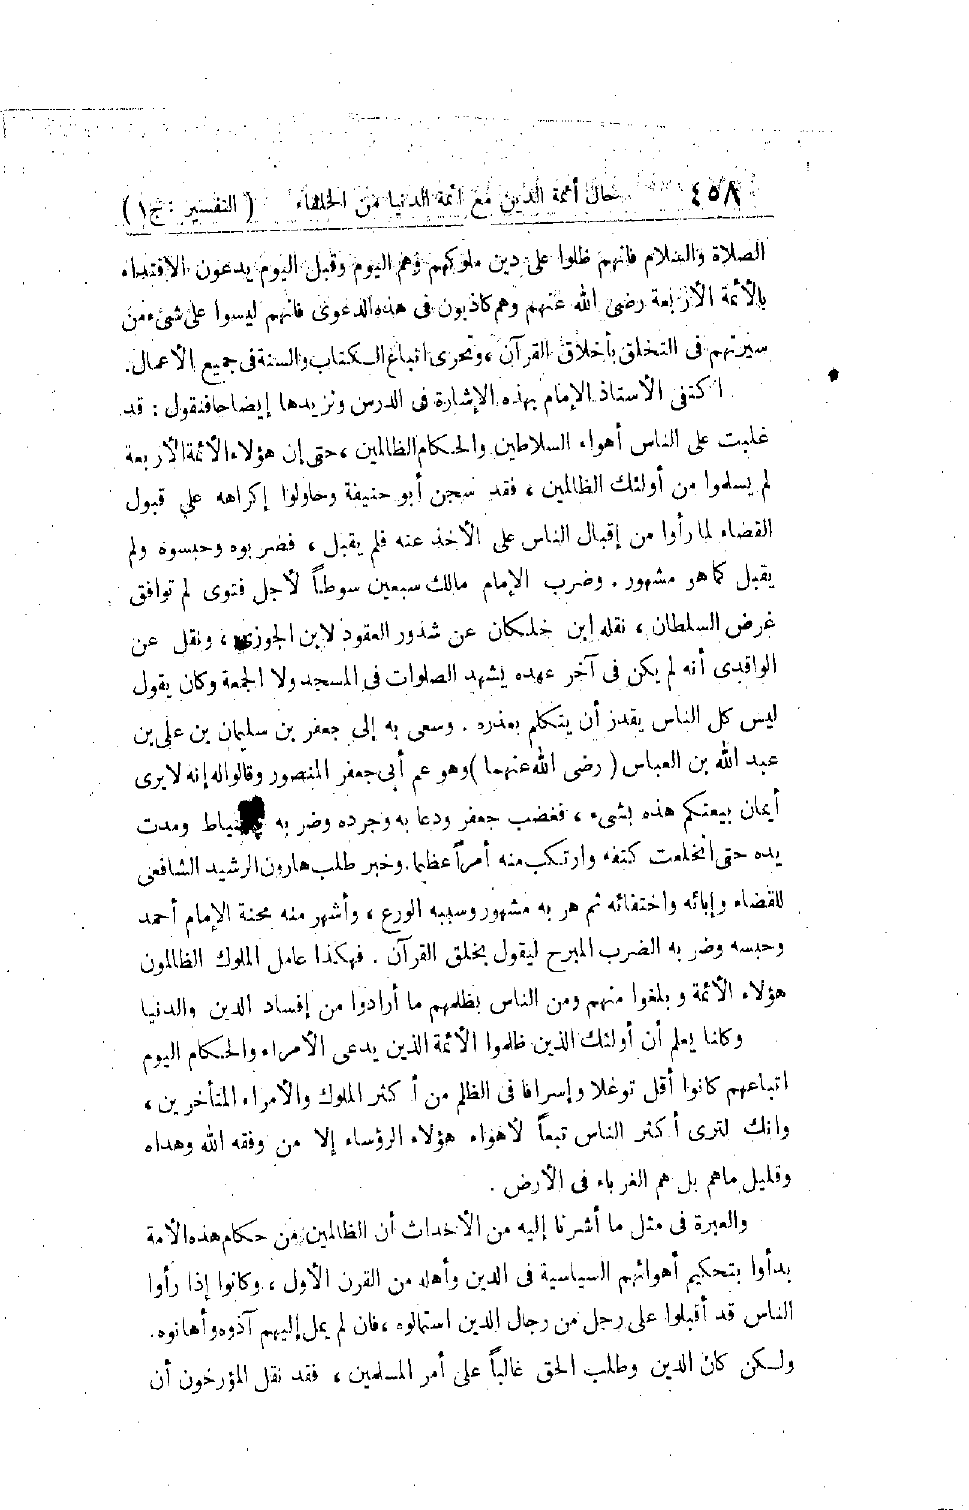 ٤٥٨ حال أئمة الدين مع أئمة الدنيا من الخلفاء ( التفسير : ج ١ )
الصلاة والسلام فانهم ظلوا على دين ملوكهم وهم اليوم وقبل اليوم يدعون الاقتداء
بالأئمة الأربعة رضى الله عنهم وهم كاذبون فى هذه الدعوى فانهم ليسوا على شىء من
سيرتهم فى التخلق بأخلاق القرآن ، وتحرى اتباع الكتاب والسنة فى جميع الأعمال .
اكتفى الأستاذ الإمام بهذه الإشارة فى الدرس ونزيدها إيضاحا فنقول : قد
غلبت على الناس أهواء السلاطين والحكام الظالمين ، حتى إن هؤلاء الأئمة الأربعة
لم يسلموا من أولئك الظالمين ، فقد سجن أبو حنيفة وحاولوا إكراهه على قبول
القضاء لما رأوا من إقبال الناس على الأخذ عنه فلم يقبل ، فضربوه وحبسوه ولم
يقبل كما هو مشهور . وضرب الإمام مالك سبعين سوطاً لأجل فتوى لم توافق
غرض السلطان ، نقله ابن خلكان عن شذور العقود لابن الجوزى ، ونقل عن
الواقدى أنه لم يكن فى آخر عهده يشهد الصلوات فى المسجد ولا الجمعة وكان يقول
ليس كل الناس يقدر أن يتكلم بعذره . وسعى به إلى جعفر بن سليمان بن على بن
عبد الله بن العباس ( رضى الله عنهما ) وهو عم أبى جعفر المنصور وقالوا له إنه لا يرى
أيمان بيعتكم هذه بشىء ، فغضب جعفر ودعا به وجرده وضربه بالسياط ومدت
يده حتى انخلعت كتفه وارتكب منه أمراً عظيما . وخبر طلب هارون الرشيد الشافعى
للقضاء وإبائه واختفائه ثم هربه مشهور وسببه الورع ، وأشهر منه محنة الإمام أحمد
وحبسه وضربه الضرب المبرح ليقول بخلق القرآن . فهكذا عامل الملوك الظالمون
هؤلاء الأئمة وبلغوا منهم ومن الناس بظلمهم ما أرادوا من إفساد الدين والدنيا
وكلنا يعلم أن أولئك الذين ظلموا الأئمة الذين يدعى الأمراء والحكام اليوم
اتباعهم كانوا أقل توغلا وإسرافا فى الظلم من أكثر الملوك والأمراء المتأخرين ،
وانك لترى أكثر الناس تبعاً لأهواء هؤلاء الرؤساء إلا من وفقه الله وهداه
وقليل ما هم بل هم الغرباء فى الأرض .
والعبرة فى مثل ما أشرنا إليه من الأحداث أن الظالمين من حكام هذه الأمة
بدأوا بتحكيم أهوائهم السياسية فى الدين وأهله من القرن الأول ، وكانوا إذا رأوا
الناس قد أقبلوا على رجل من رجال الدين استمالوه ، فان لم يمل إليهم آذوه وأهانوه .
ولكن كان الدين وطلب الحق غالباً على أمر المسلمين ، فقد نقل المؤرخون أن